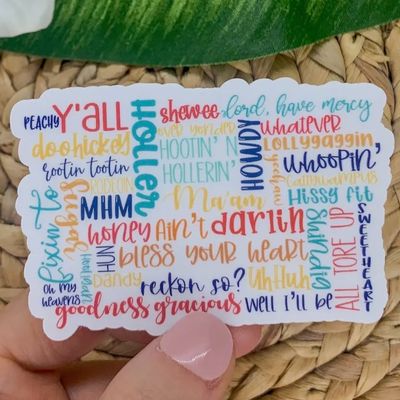 PEACHY Y'ALL HOLLER shewee lord, have mercy
doohickey over yonder HOWDY whatever
HOOTIN' N HOLLERIN' lollygaggin
rootin tootin yeehaw whoopin'
fixin to Sugar RODEOIN Ma'am cattywampus
MHM Hissy fit
honey Ain't darlin Shindig ALL TORE UP SWEETHEART
HUN bless your heart
Dandy reckon so? UhHuh
oh my heavens
goodness gracious well I'll be